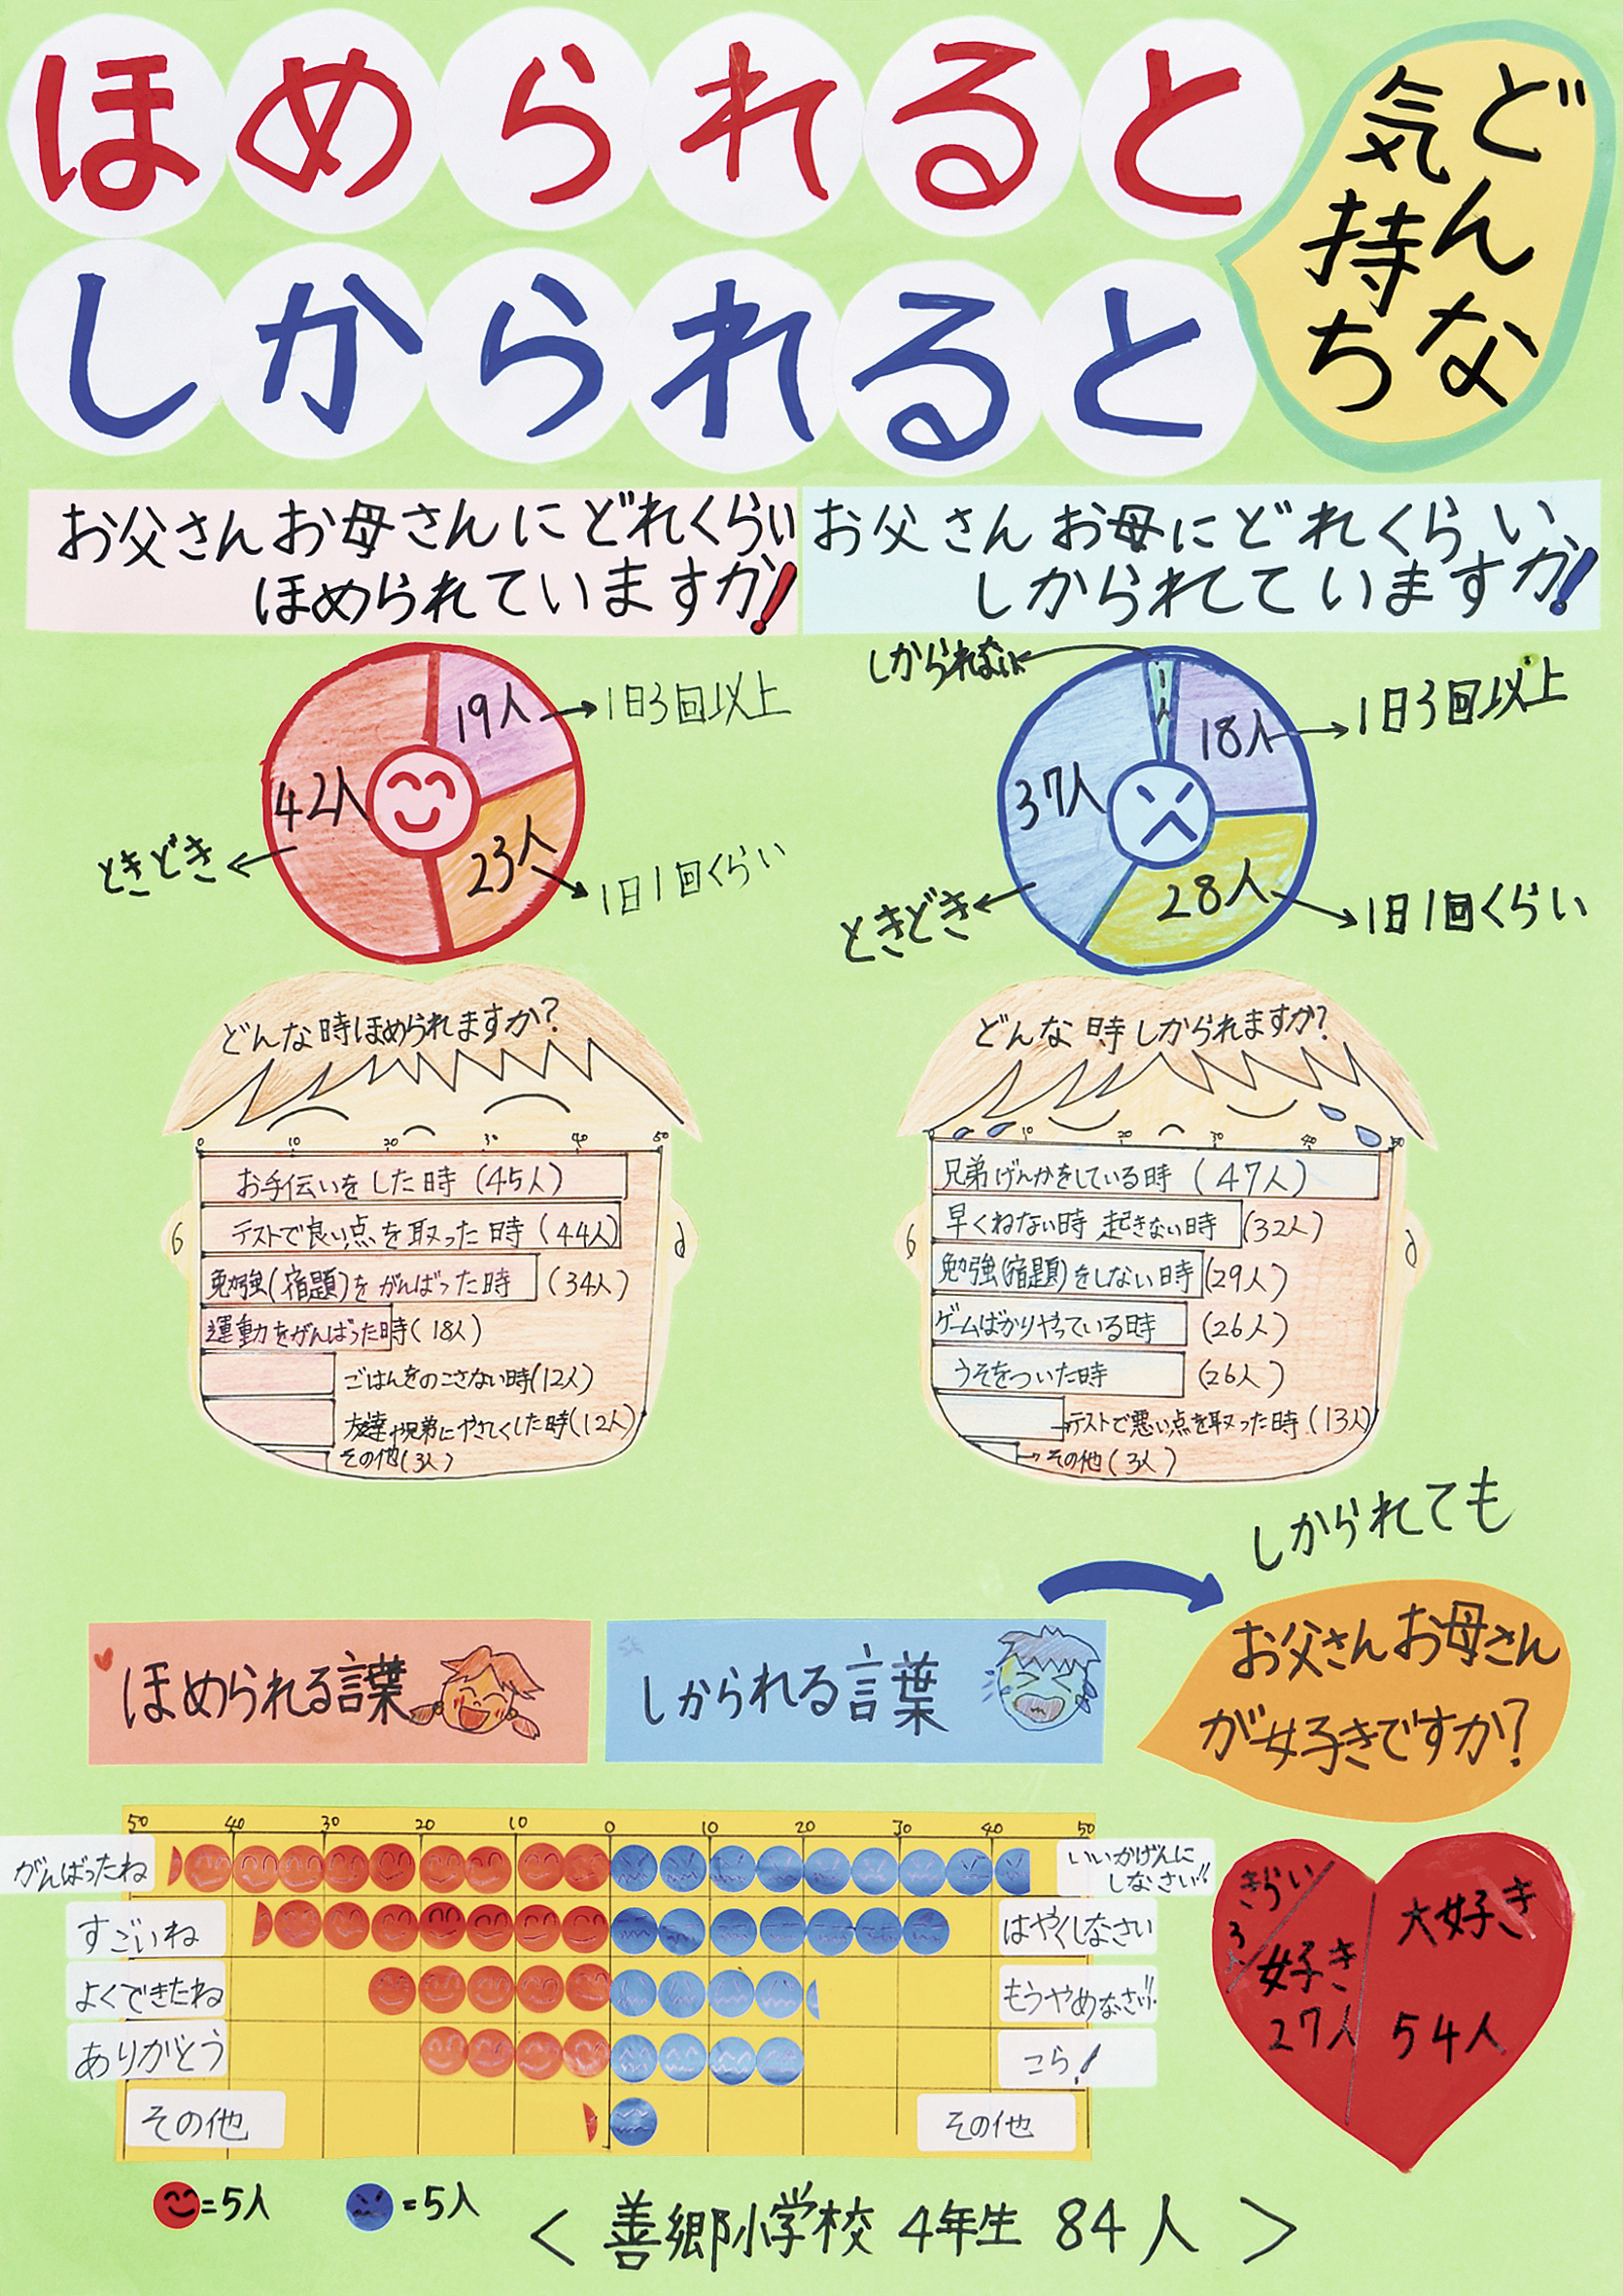 ほめられると
しかられると
どんな
気持ち
お父さんお母さんにどれくらい
ほめられていますか!
お父さんお母にどれくらい
しかられていますか!
19人
1日3回以上
42人
ときどき
23人
1日1回くらい
しかられない
1人
18人
1日3回以上
37人
ときどき
28人
1日1回くらい
どんな時ほめられますか?
0 10 20 30 40 50
お手伝いをした時(45人)
テストで良い点を取った時(44人)
勉強(宿題)をがんばった時(34人)
運動をがんばった時(18人)
ごはんをのこさない時(12人)
友達や兄弟にやさしくした時(12人)
その他(3人)
どんな時しかられますか?
0 10 20 30 40 50
兄弟げんかをしている時(47人)
早くねない時 起きない時(32人)
勉強(宿題)をしない時(29人)
ゲームばかりやっている時(26人)
うそをついた時(26人)
テストで悪い点を取った時(13人)
その他(3人)
しかられても
お父さんお母さん
が好きですか?
ほめられる言葉
しかられる言葉
50 40 30 20 10 0 10 20 30 40 50
がんばったね
いいかげんに
しなさい!!
すごいね
はやくしなさい
よくできたね
もうやめなさい!!
ありがとう
こら!
その他
その他
きらい
3人
好き
27人
大好き
54人
=5人
=5人
<善郷小学校 4年生 84人>